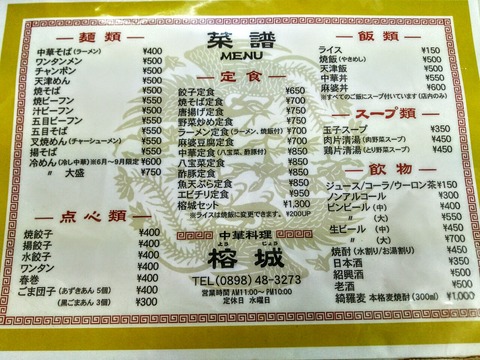 菜譜
MENU
麺類
中華そば(ラーメン) ¥400
ワンタンメン ¥500
チャンポン ¥500
天津めん ¥500
焼そば ¥500
焼ビーフン ¥500
汁ビーフン ¥500
五目ビーフン ¥500
五目そば ¥500
叉焼めん(チャーシューメン) ¥550
揚そば ¥550
冷めん(冷し中華)※6月〜9月限定 ¥600
〃 大盛 ¥750
点心類
焼餃子 ¥400
揚餃子 ¥400
水餃子 ¥400
ワンタン ¥400
春巻 ¥400
ごま団子(あずきあん 5個) ¥400
(黒ごまあん 3個) ¥300
定食
餃子定食 ¥650
焼そば定食 ¥700
唐揚げ定食 ¥750
野菜炒め定食 ¥750
ラーメン定食(ラーメン、焼飯付) ¥800
麻婆豆腐定食 ¥800
中華定食(八宝菜、酢豚付) ¥850
八宝菜定食 ¥850
酢豚定食 ¥850
魚天ぷら定食 ¥850
エビチリ定食 ¥950
榕城セット ¥1,300
※ライスは焼飯に変更できます。¥200UP
中華料理
榕城
よう じょう
TEL(0898)48-3273
営業時間 AM11:00〜PM10:00
定休日 水曜日
飯類
ライス ¥150
焼飯(やきめし) ¥500
天津飯 ¥500
中華丼 ¥500
麻婆丼 ¥500
※すべてのご飯にスープ付いています(店内のみ)
スープ類
玉子スープ ¥350
肉片清湯(肉野菜スープ) ¥450
鶏片清湯(とり野菜スープ) ¥450
飲物
ジュース/コーラ/ウーロン茶 ¥150
ノンアルコール ¥300
ビンビール(中) ¥400
〃 (大) ¥550
生ビール(中) ¥450
〃 (大) ¥700
焼酎(水割り/お湯割り) ¥450
日本酒 ¥350
紹興酒 ¥500
老酒 ¥500
綺羅麦 本格麦焼酎(300ml) ¥1,000